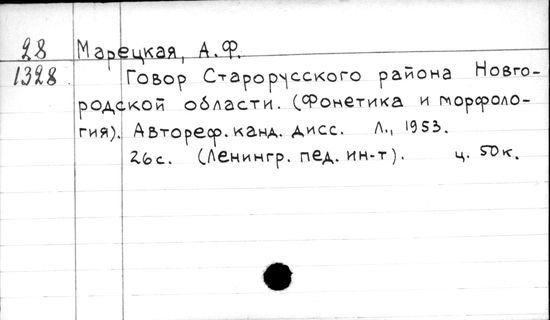 28 Марецкая, А.Ф.
1328 Говор Старорусского района Новго-
родской области. (Фонетика и морфоло-
гия). Автореф. канд. дисс. Л., 1953.
26с. (Ленингр. пед. ин-т). ц. 50к.